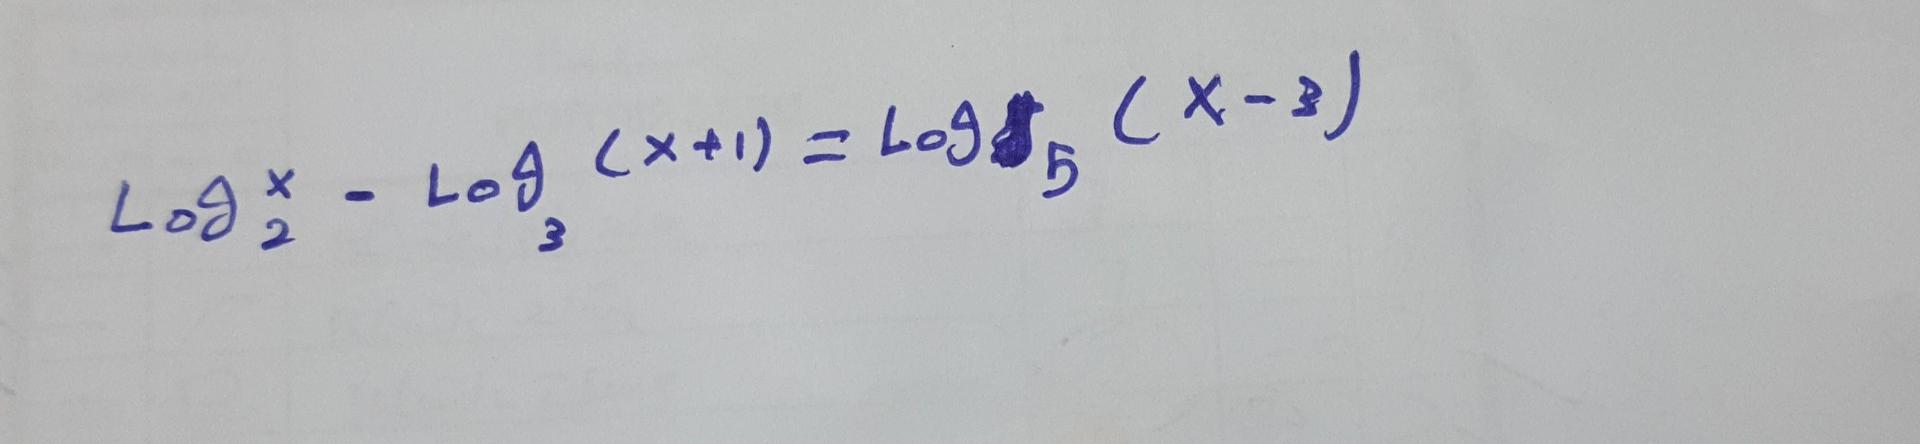 Log₂ˣ - Log₃(x+1) = Log₅(x-3)